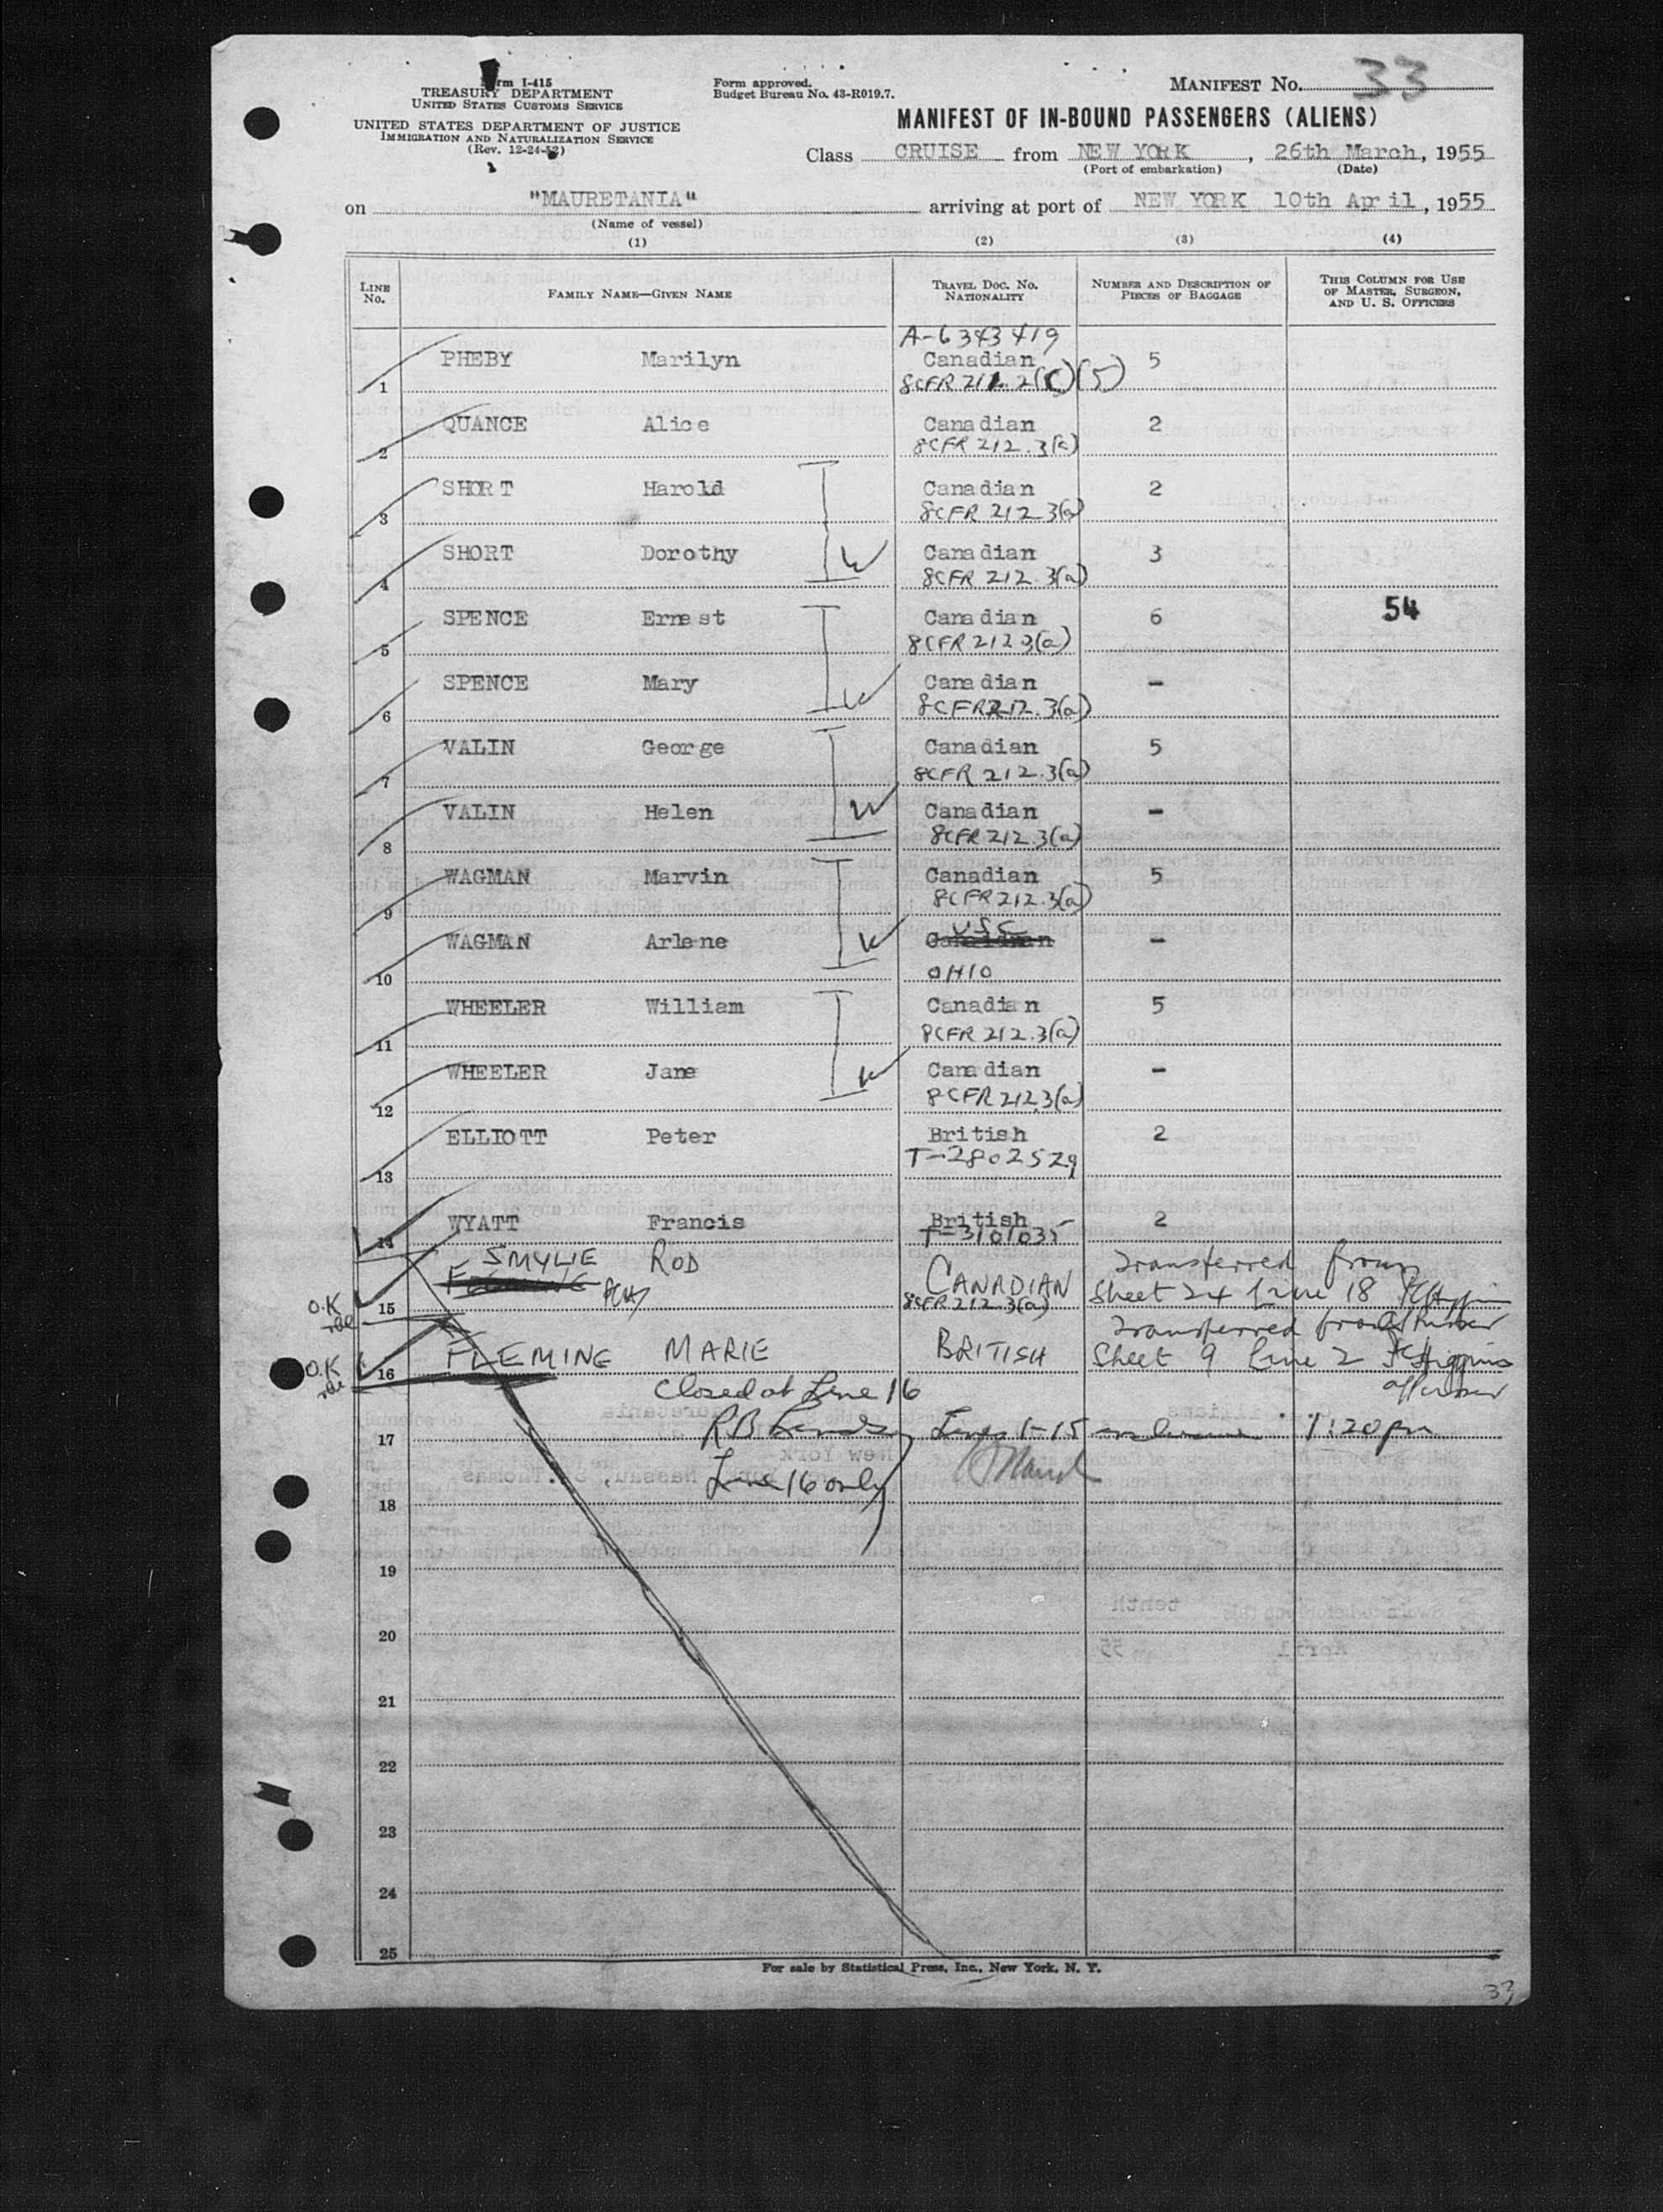 Form I-415
TREASURY DEPARTMENT
UNITED STATES CUSTOMS SERVICE
UNITED STATES DEPARTMENT OF JUSTICE
IMMIGRATION AND NATURALIZATION SERVICE
(Rev. 12-24-52)
Form approved.
Budget Bureau No. 43-R019.7.
MANIFEST No. 33
MANIFEST OF IN-BOUND PASSENGERS (ALIENS)
Class CRUISE from NEW YORK, 26th March, 1955
(Port of embarkation) (Date)
on "MAURETANIA" arriving at port of NEW YORK 10th April, 1955
(Name of vessel)
(1) (2) (3) (4)
LINE No. FAMILY NAME—GIVEN NAME TRAVEL DOC. No. NATIONALITY NUMBER AND DESCRIPTION OF PIECES OF BAGGAGE THIS COLUMN FOR USE OF MASTER, SURGEON, AND U. S. OFFICERS
A-6343419
PHEBY Marilyn Canadian 5
1 8CFR 212.2(C)(5)
QUANCE Alice Canadian 2
2 8CFR 212.3(a)
SHORT Harold Canadian 2
3 8CFR 212.3(a)
SHORT Dorothy Canadian 3
4 8CFR 212.3(a)
SPENCE Ernest Canadian 6 54
5 8CFR 212 3(a)
SPENCE Mary Canadian -
6 8CFR 212.3(a)
VALIN George Canadian 5
7 8CFR 212.3(a)
VALIN Helen Canadian -
8 8CFR 212.3(a)
WAGMAN Marvin Canadian 5
9 8CFR 212.3(a)
USC
WAGMAN Arlene Canadian -
10 OHIO
WHEELER William Canadian 5
11 8CFR 212.3(a)
WHEELER Jane Canadian -
12 8CFR 212.3(a)
ELLIOTT Peter British 2
13 T-2802529
WYATT Francis British 2
14 T-3101035
SMYLIE ROD CANADIAN Transferred from
O.K 15 8CFR 212.3(a) Sheet 24 Line 18
Transferred from
FLEMING MARIE BRITISH Sheet 9 Line 2
O.K 16
Closed at Line 16
17 Lines 1-15 inclusive 1:20 pm
Line 16 only
18
19
20
21
22
23
24
25
For sale by Statistical Press, Inc., New York, N. Y.
33